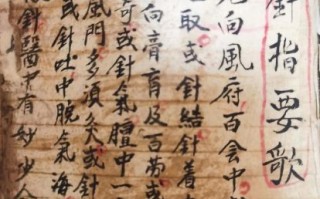 針指要歌
先向風府百会中
取或針結針着
向膏肓及百劳或
奇或針氣膻中一
風門多須灸或針
或針吐中脘氣海
針醫中有妙少人